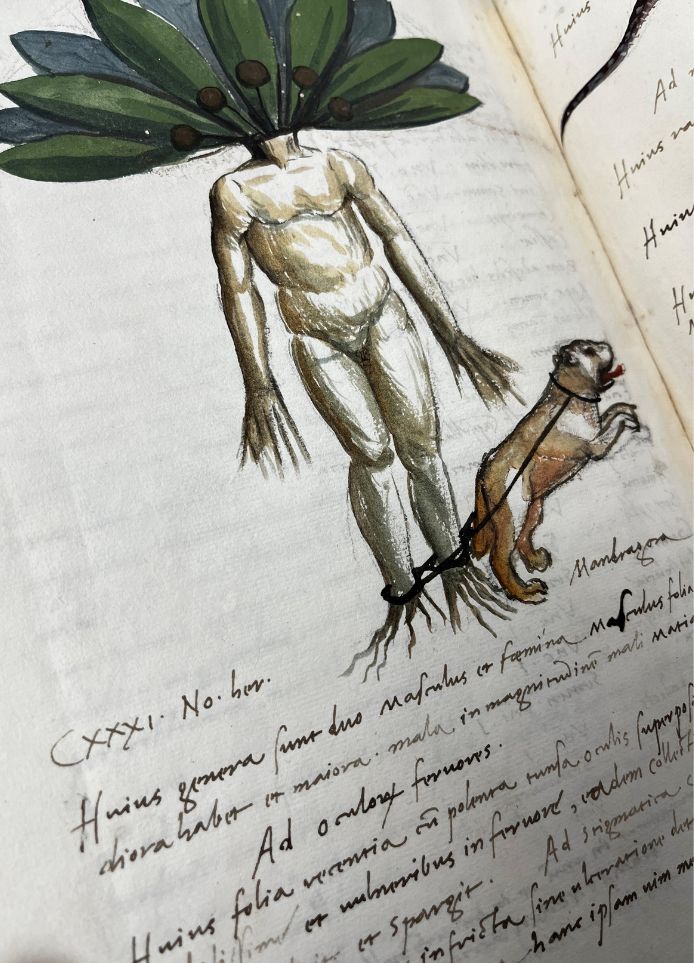 Huius
Ad
Huius
Huius
Mandragora
CXXXI. No. her.
Huius genera sunt duo Masculus et fœmina Masculus folia
diora habet et maiora. mala in magnitudinẽ mali
Ad oculoꝝ feruores.
Huius folia recentia cũ polenta tunsa oculis superpos
et uulneribus in feruore, eadem collect
et spargit. Ad stigmatica
infricta sine ulceratione det
hanc ipsam uim